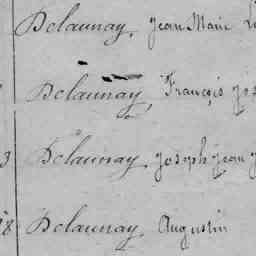 Delaunay, Jean Marie
Delaunay, François
3 Delaunay, Joseph Jean
8 Delaunay, Augustin